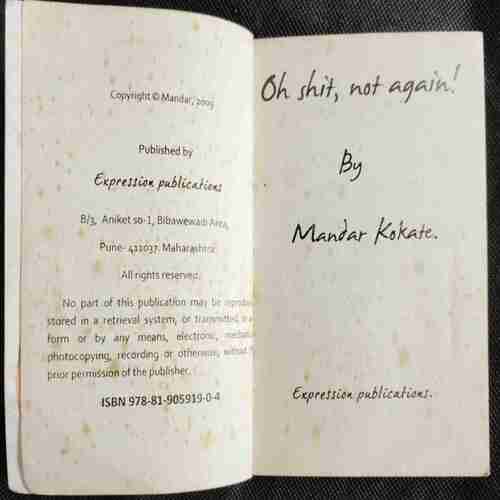 Copyright © Mandar, 2009
Published by
Expression publications
B/3, Aniket so-1, Bibawewadi Area,
Pune- 411037. Maharashtra
All rights reserved.
No part of this publication may be
stored in a retrieval system, or transmitted,
form or by any means, electronic,
photocopying, recording or otherwise, without
prior permission of the publisher.
ISBN 978-81-905919-0-4
Oh shit, not again!
By
Mandar Kokate.
Expression publications.